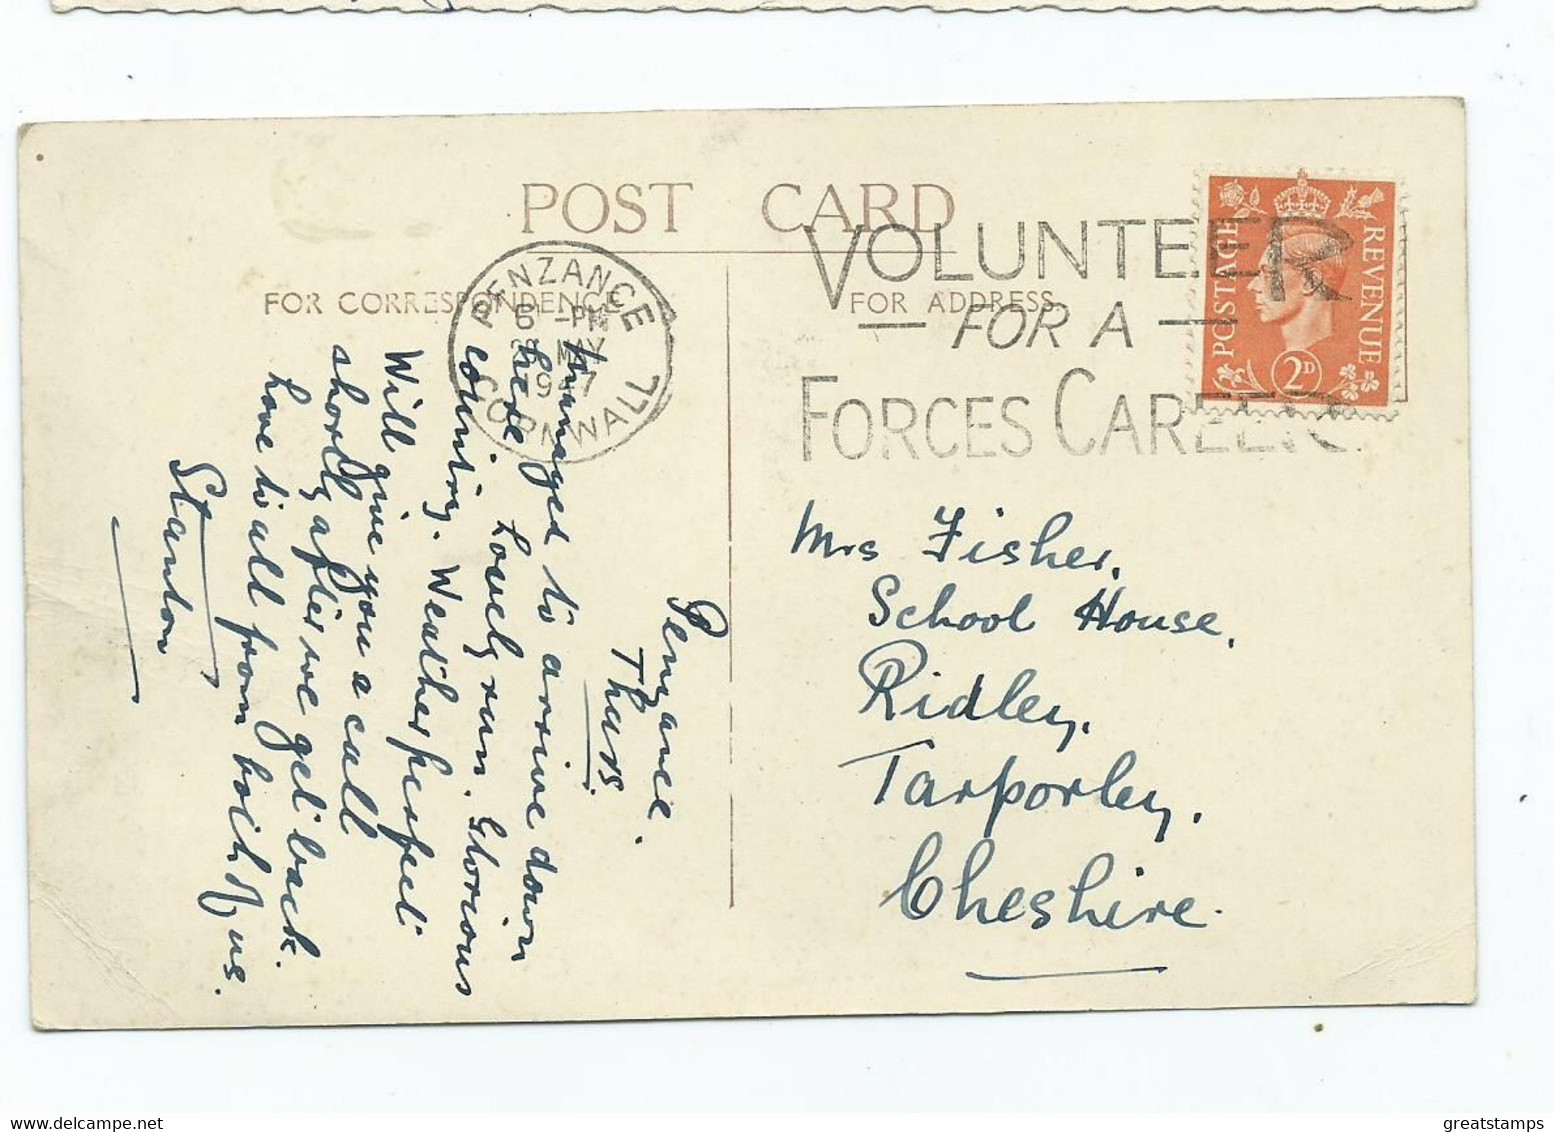 POST CARD
FOR CORRESPONDENCE
FOR ADDRESS
PENZANCE
CORNWALL
-PM
MAY
1947
VOLUNTEER
— FOR A —
FORCES CAREER
POSTAGE
REVENUE
2D
Penzance.
Thurs.
Managed to arrive down
here. Lovely run. Glorious
country. Weather perfect
Will give you a call
shortly after we get back.
Love to all from both of us.
Stanton
Mrs Fisher,
School House,
Ridley,
Tarporley,
Cheshire.
greatstamps